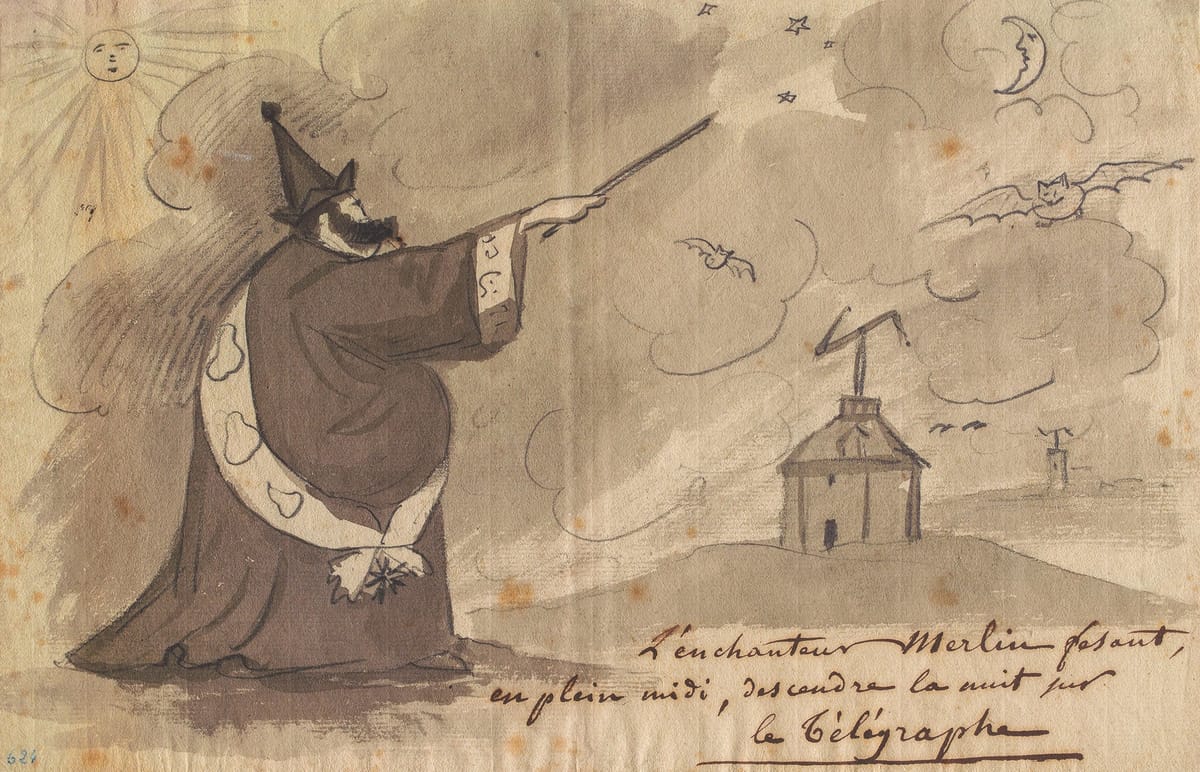 L'enchanteur Merlin fesant,
en plein midi, descendre la nuit sur
le Télégraphe